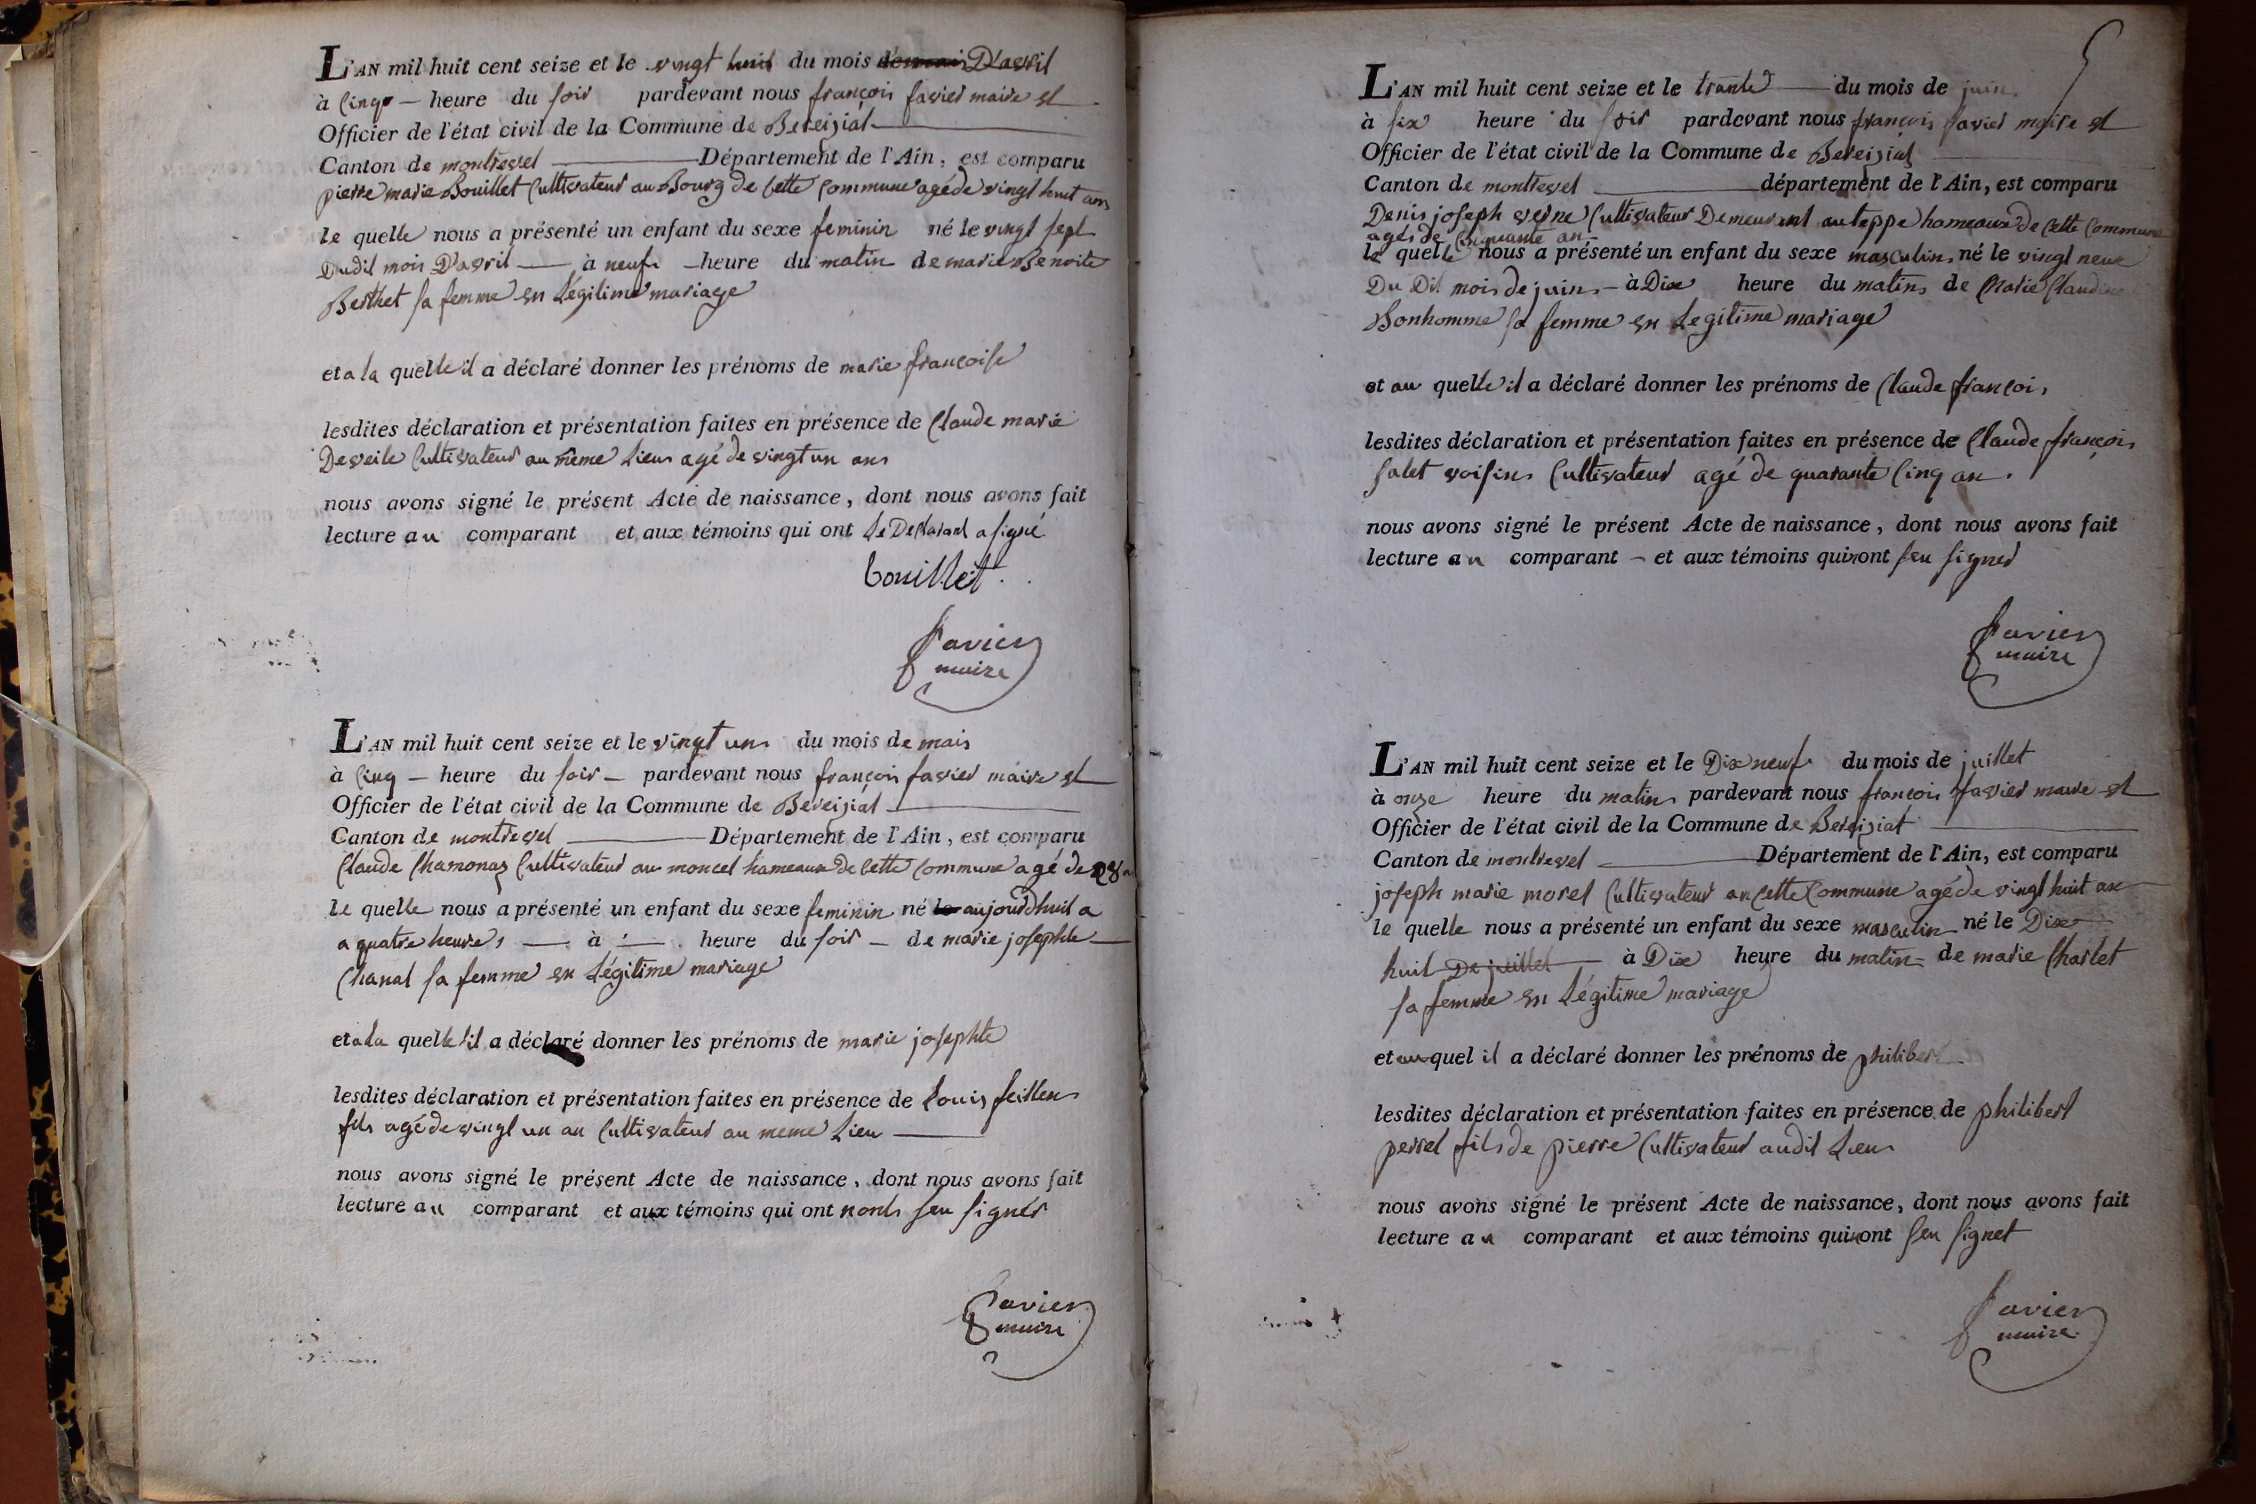 L'AN mil huit cent seize et le vingt huit du mois D'avril
à Cinq — heure du soir pardevant nous françois favier maire et
Officier de l'état civil de la Commune de Bereiziat
Canton de montrevel — Département de l'Ain, est comparu
pierre marie Bouillet Cultivateur au Bourg de Cette Commune agé de vingt huit ans
le quelle nous a présenté un enfant du sexe feminin né le vingt sept
Dudit mois D'avril — à neuf — heure du matin de marie Benoite
Berthet sa femme en Légitime mariage
et a la quelle il a déclaré donner les prénoms de marie françoise
lesdites déclaration et présentation faites en présence de Claude marie
Deveile Cultivateur au même Lieu agé de vingt un ans
nous avons signé le présent Acte de naissance, dont nous avons fait
lecture au comparant et aux témoins qui ont Le Déclarant a signé
bouillet
favier
maire
L'AN mil huit cent seize et le vingt un du mois de mais
à Cinq — heure du soir — pardevant nous françois favier maire et
Officier de l'état civil de la Commune de Bereiziat
Canton de montrevel — Département de l'Ain, est comparu
Claude Chamonaz Cultivateur au moncel hameaux de Cette Commune agé de 28
le quelle nous a présenté un enfant du sexe feminin né le aujourdhuit a
a quatre heures — à — heure du soir — de marie josephte
Chanal sa femme en Légitime mariage
et a la quelle il a déclaré donner les prénoms de marie josephte
lesdites déclaration et présentation faites en présence de Louis feillen
fils agé de vingt un an Cultivateur au meme Lieu
nous avons signé le présent Acte de naissance, dont nous avons fait
lecture au comparant et aux témoins qui ont nonts seu signér
favier
maire
L'AN mil huit cent seize et le trante — du mois de juin
à six heure du soir pardevant nous françois favier maire et
Officier de l'état civil de la Commune de Bereiziat
Canton de montrevel — département de l'Ain, est comparu
Denis joseph verne Cultivateur Demeurant au teppe hameaux de Cette Commune
agés de Cinquante an
le quelle nous a présenté un enfant du sexe masculin né le vingt neuf
Du Dit mois de juin — à Dix heure du matin de Marie Claudine
Bonhomme sa femme en Legitime mariage
et au quelle il a déclaré donner les prénoms de Claude françois
lesdites déclaration et présentation faites en présence de Claude françois
salet voisin Cultivateur agé de quarante Cinq an
nous avons signé le présent Acte de naissance, dont nous avons fait
lecture au comparant — et aux témoins qui n'ont seu signer
favier
maire
L'AN mil huit cent seize et le Dix neuf du mois de juillet
à onze heure du matin pardevant nous françois favier maire et
Officier de l'état civil de la Commune de Bereiziat
Canton de montrevel — Département de l'Ain, est comparu
joseph marie morel Cultivateur en Cette Commune agé de vingt huit an
le quelle nous a présenté un enfant du sexe masculin né le Dix
huit De juillet — à Dix heure du matin — de marie Charlet
sa femme en Légitime mariage
et au quel il a déclaré donner les prénoms de philibert
lesdites déclaration et présentation faites en présence de philibert
perrel fils de pierre Cultivateur audit Lieu
nous avons signé le présent Acte de naissance, dont nous avons fait
lecture au comparant et aux témoins qui n'ont seu signet
favier
maire